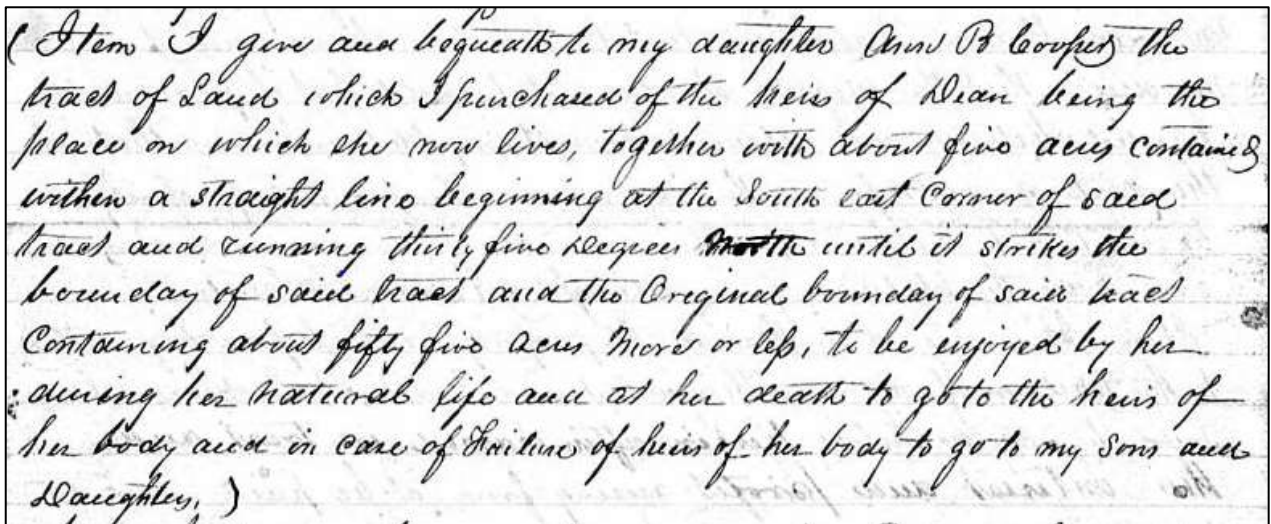 (Item I give and bequeath to my daughter Ann B Cooper the
tract of Land which I purchased of the heirs of Dean being the
place on which she now lives, together with about five acres contained
within a straight line beginning at the South east Corner of said
tract and running thirty five Degrees North until it strikes the
bounday of said tract and the Original bounday of said tract
Containing about fifty five acres More or less, to be enjoyed by her
during her natural life and at her death to go to the heirs of
her body and in case of Failure of heirs of her body to go to my Sons and
Daughters.)